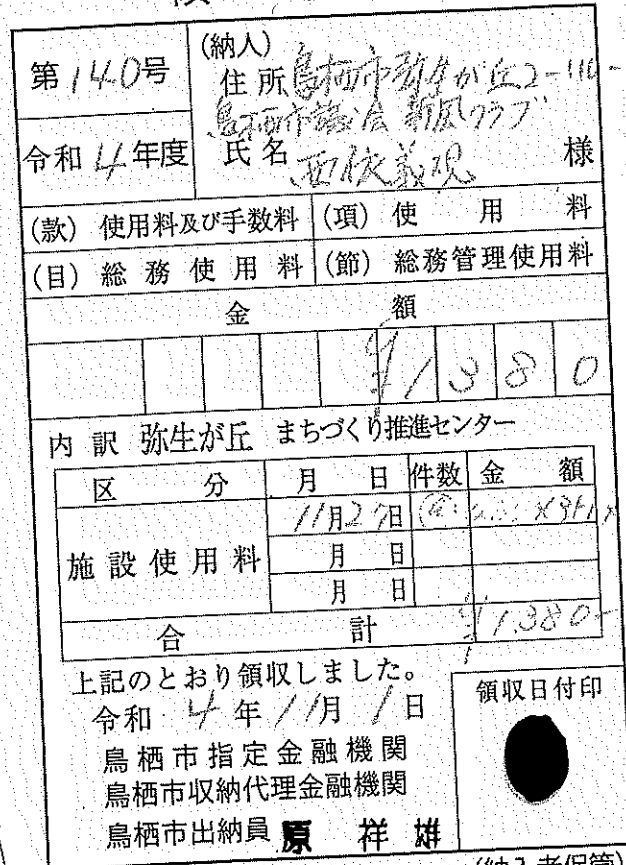 第140号
(納入)
住所 鳥栖市弥生が丘2-
鳥栖市議会 新風クラブ
令和4年度
氏名 西依義規 様
(款) 使用料及び手数料 (項) 使用料
(目) 総務使用料 (節) 総務管理使用料
金額
¥1380
内訳 弥生が丘 まちづくり推進センター
区分 月日 件数 金額
施設使用料 11月27日
月日
月日
合計 ¥1,380-
上記のとおり領収しました。
領収日付印
令和4年11月1日
鳥栖市指定金融機関
鳥栖市収納代理金融機関
鳥栖市出納員 原 祥雄
(納入者保管)